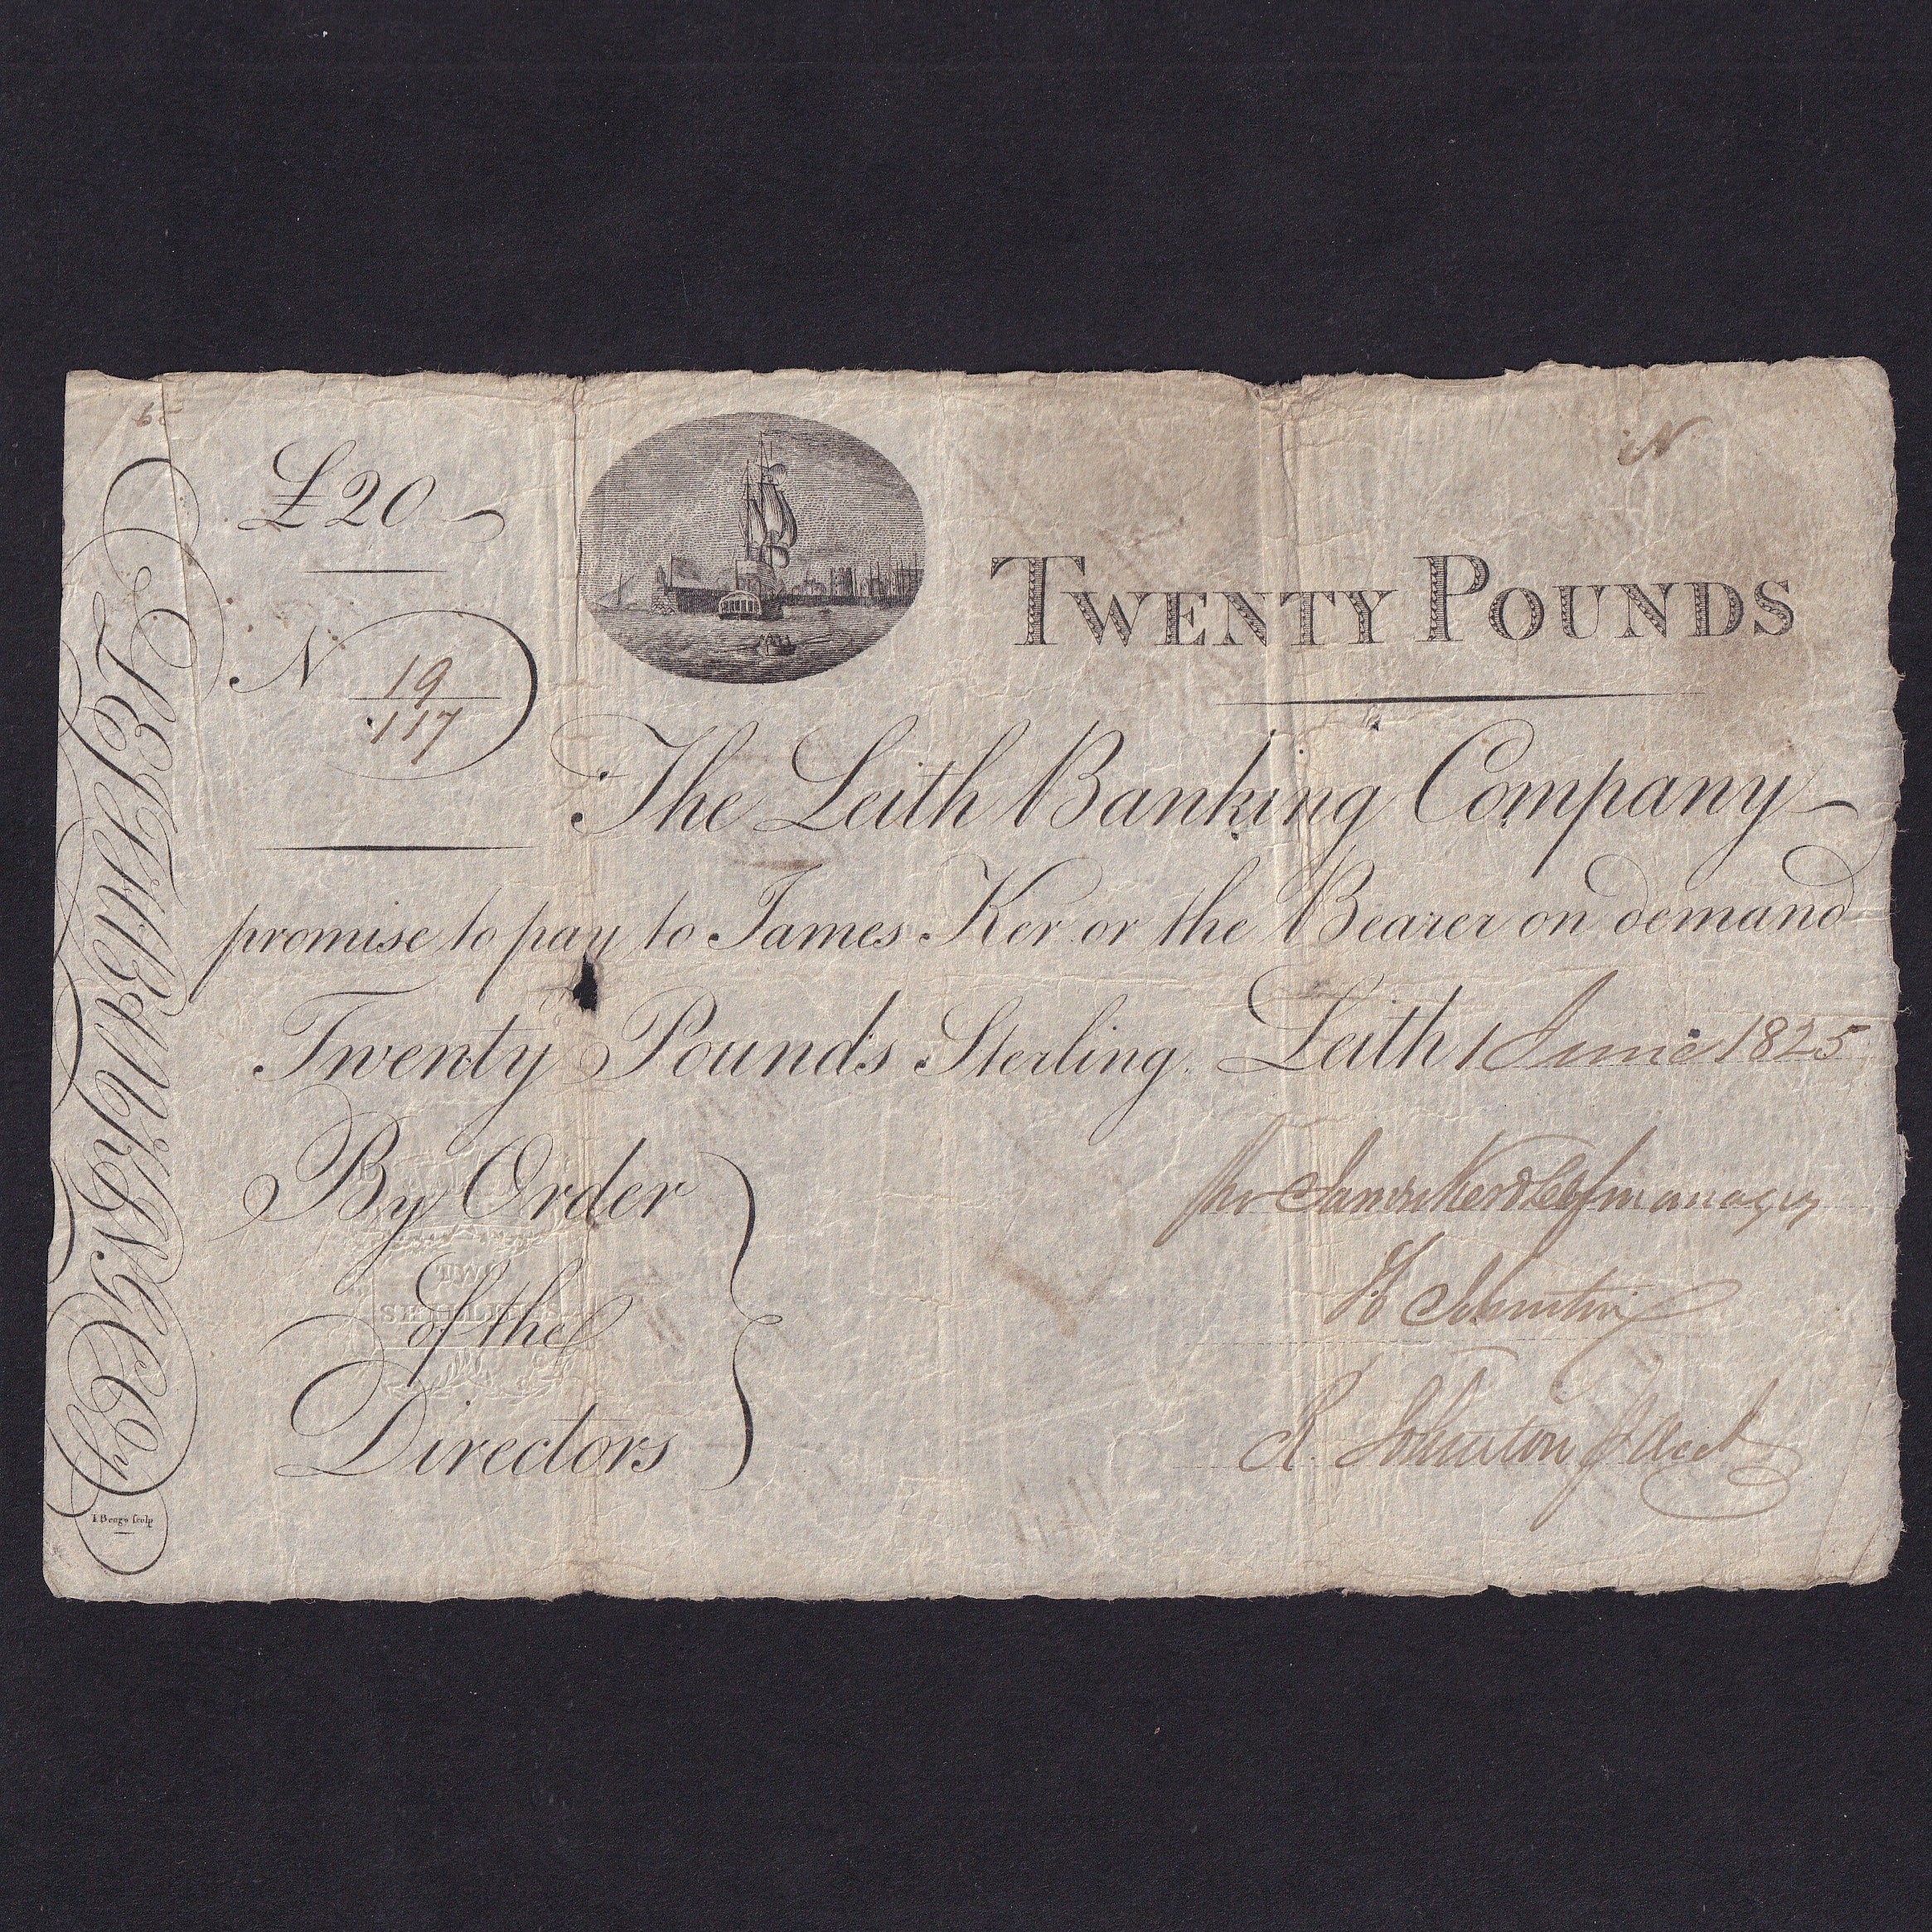 £20
TWENTY POUNDS
N
N 19
117
The Leith Banking Company
promise to pay to James Ker or the Bearer on demand
Twenty Pounds Sterling. Leith 1 June 1825
By Order
of the
Directors
TWO
SHILLINGS
James Ker manager
H Johnston
R. Johnston
LEITH BANKING COy
I Beugo sculp